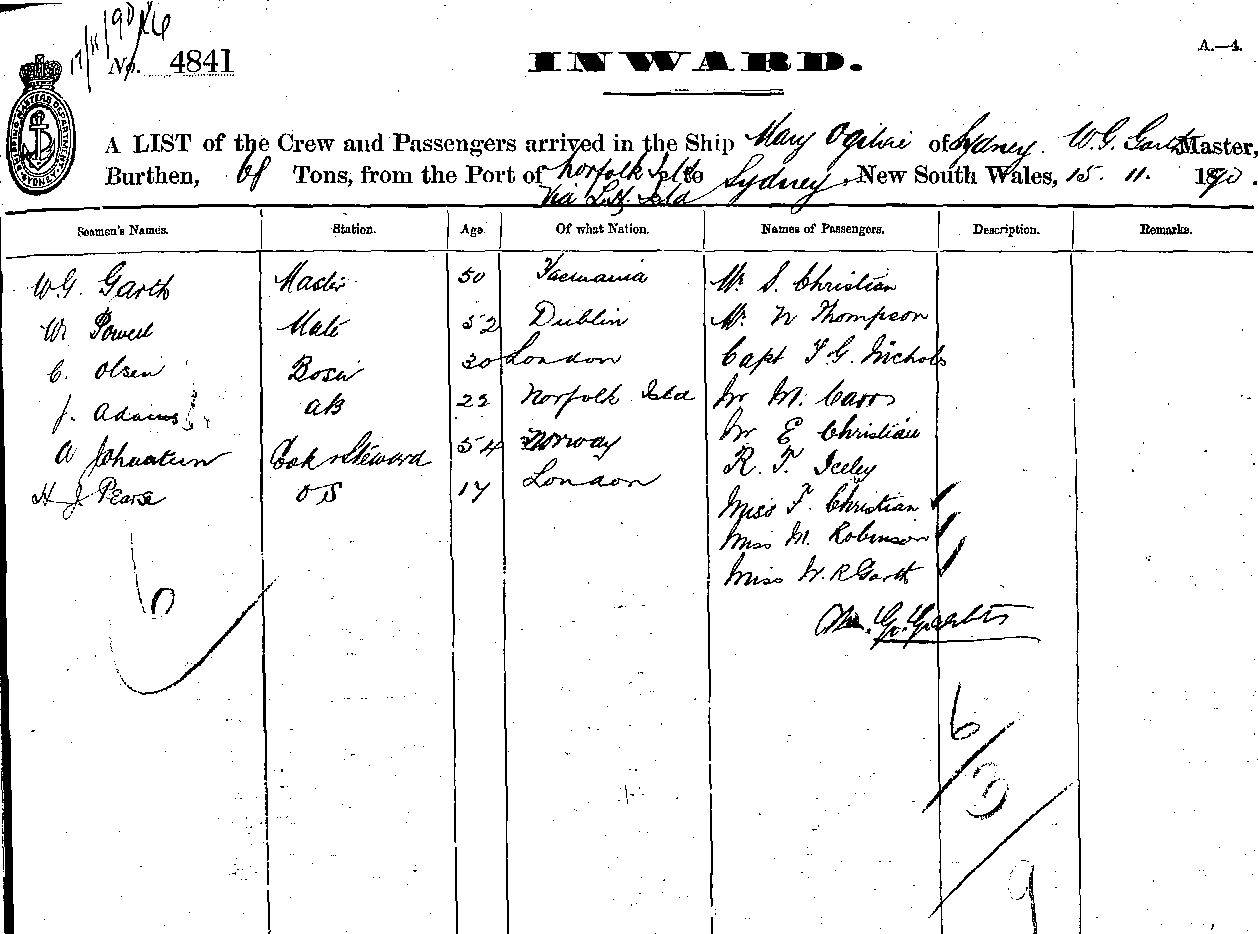 17/11/90
No. 4841
INWARD.
A.—4.
SHIPPING MASTERS DEPARTMENT SYDNEY
A LIST of the Crew and Passengers arrived in the Ship Mary Ogilvie of Sydney. W.G. Garth Master,
Burthen, 68 Tons, from the Port of Norfolk Isld to Sydney, New South Wales, 15. 11. 1890.
Via L.H. Isld
Seamen's Names. Station. Age. Of what Nation. Names of Passengers. Description. Remarks.
W.G. Garth Master 50 Tasmania Mr S. Christian
W. Powell Mate 52 Dublin Mr N Thompson
C. Olsen Bosn 30 London Capt T G. Nichols
J. Adams AB 22 Norfolk Isld Mr M. Carrs
A Johnstun Cook & Steward 54 Norway Mr E Christian
H J Pearse O S 17 London R. T. Iceley
Miss F. Christian
Miss M. Robinson
Miss W. R Garth
6
6
3
9